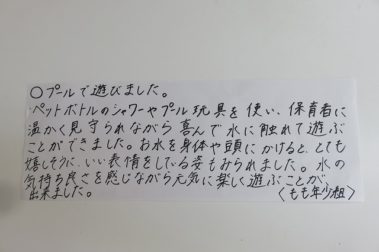 ○プールで遊びました。
ペットボトルのシャワーやプール玩具を使い、保育者に
温かく見守られながら喜んで水に触れて遊ぶ
ことができました。お水を身体や頭にかけると、とても
嬉しそうな、いい表情をしている姿もみられました。水の
気持ち良さを感じながら元気に楽しく遊ぶことが
出来ました。
〈もも年少組〉